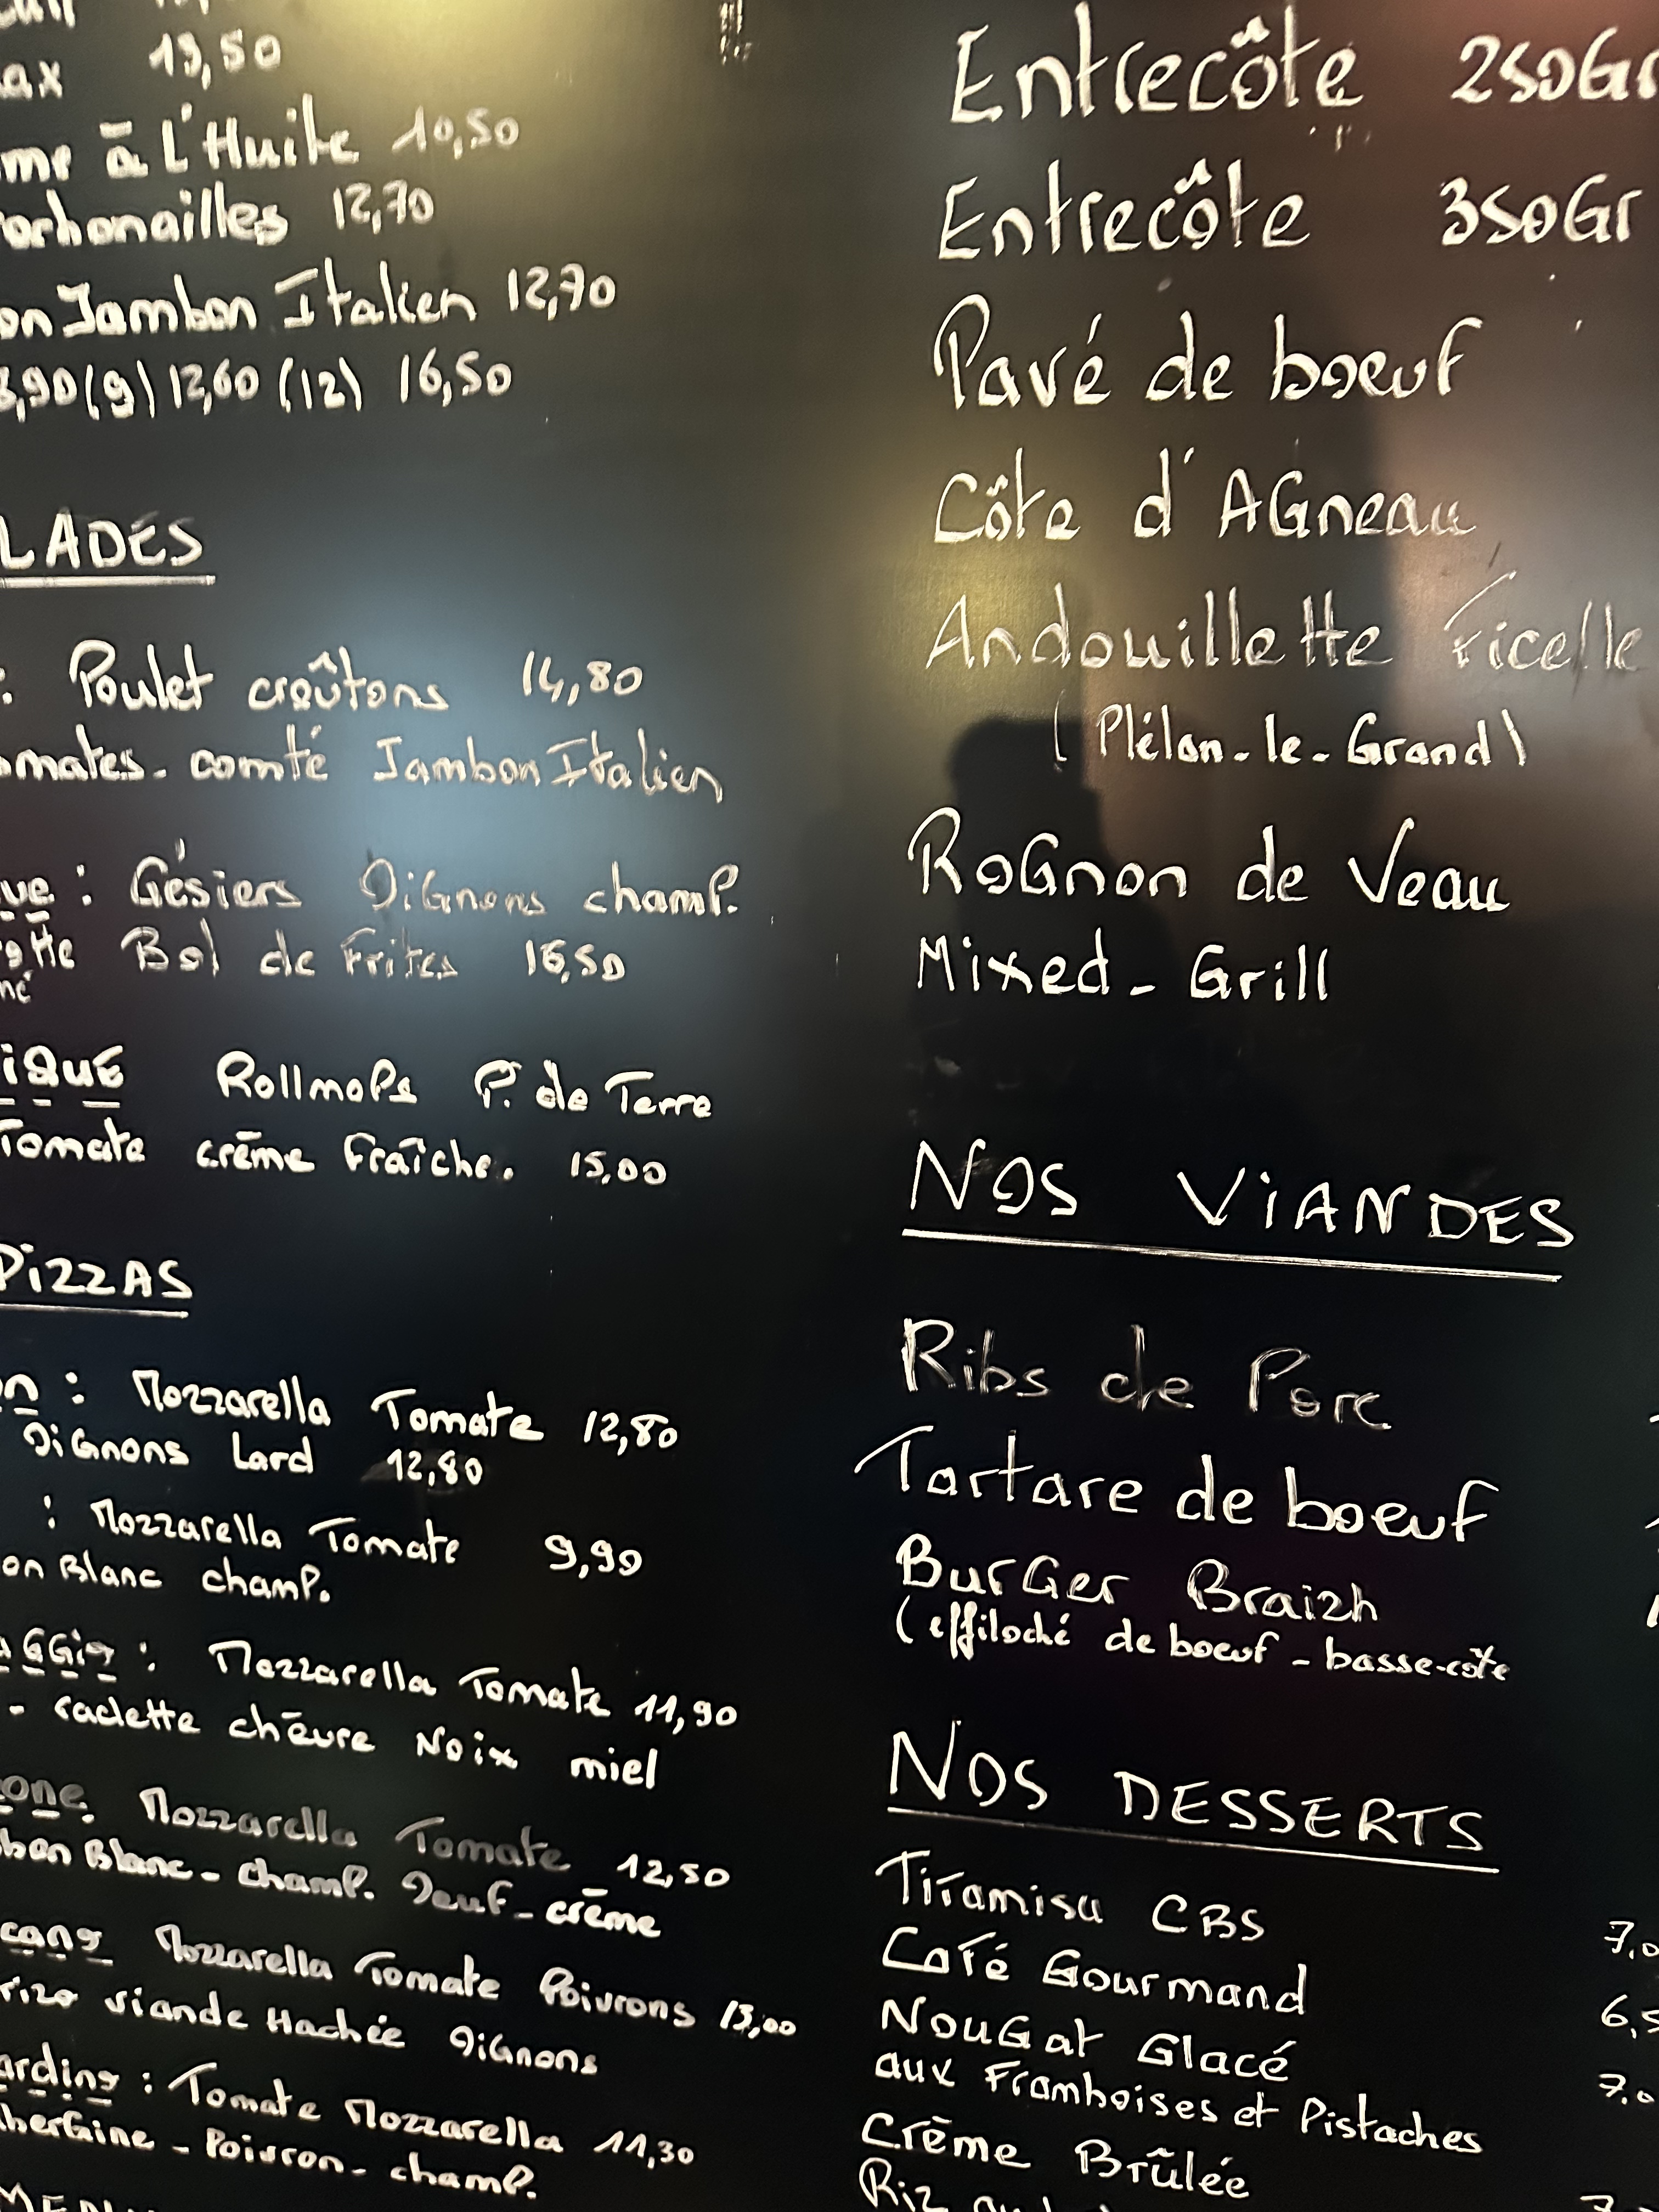 13,50
à L'Huile 10,50
12,70
Jambon Italien 12,70
,90 (9) 12,60 (12) 16,50
LADES
: Poulet croûtons 14,80
omates - comté Jambon Italien
: Gésiers Oignons champ.
Bol de Frites 16,50
IQUE Rollmops P. de Terre
Tomate crème Fraîche. 15,00
PIZZAS
: Mozzarella Tomate 12,80
Oignons Lard 12,80
: Mozzarella Tomate 9,90
on Blanc champ.
aggio : Mozzarella Tomate 11,90
- raclette chèvre Noix miel
one : Mozzarella Tomate 12,50
bon Blanc - champ. Oeuf - crème
Mozzarella Tomate Poivrons 13,00
rizo viande Hachée Oignons
ardino : Tomate Mozzarella 11,30
bergine - Poivron - champ.
Entrecôte 250Gr
Entrecôte 350Gr
Pavé de boeuf
Côte d'AGneau
Andouillette Ficelle
(Plélan-le-Grand)
RoGnon de Veau
Mixed - Grill
NOS VIANDES
Ribs de Porc
Tartare de boeuf
BurGer Braizh
(effiloché de boeuf - basse-côte
NOS DESSERTS
Tiramisu CBS 7,0
Café Gourmand 6,5
NouGat Glacé 7,0
aux Framboises et Pistaches
Crème Brûlée
Riz au